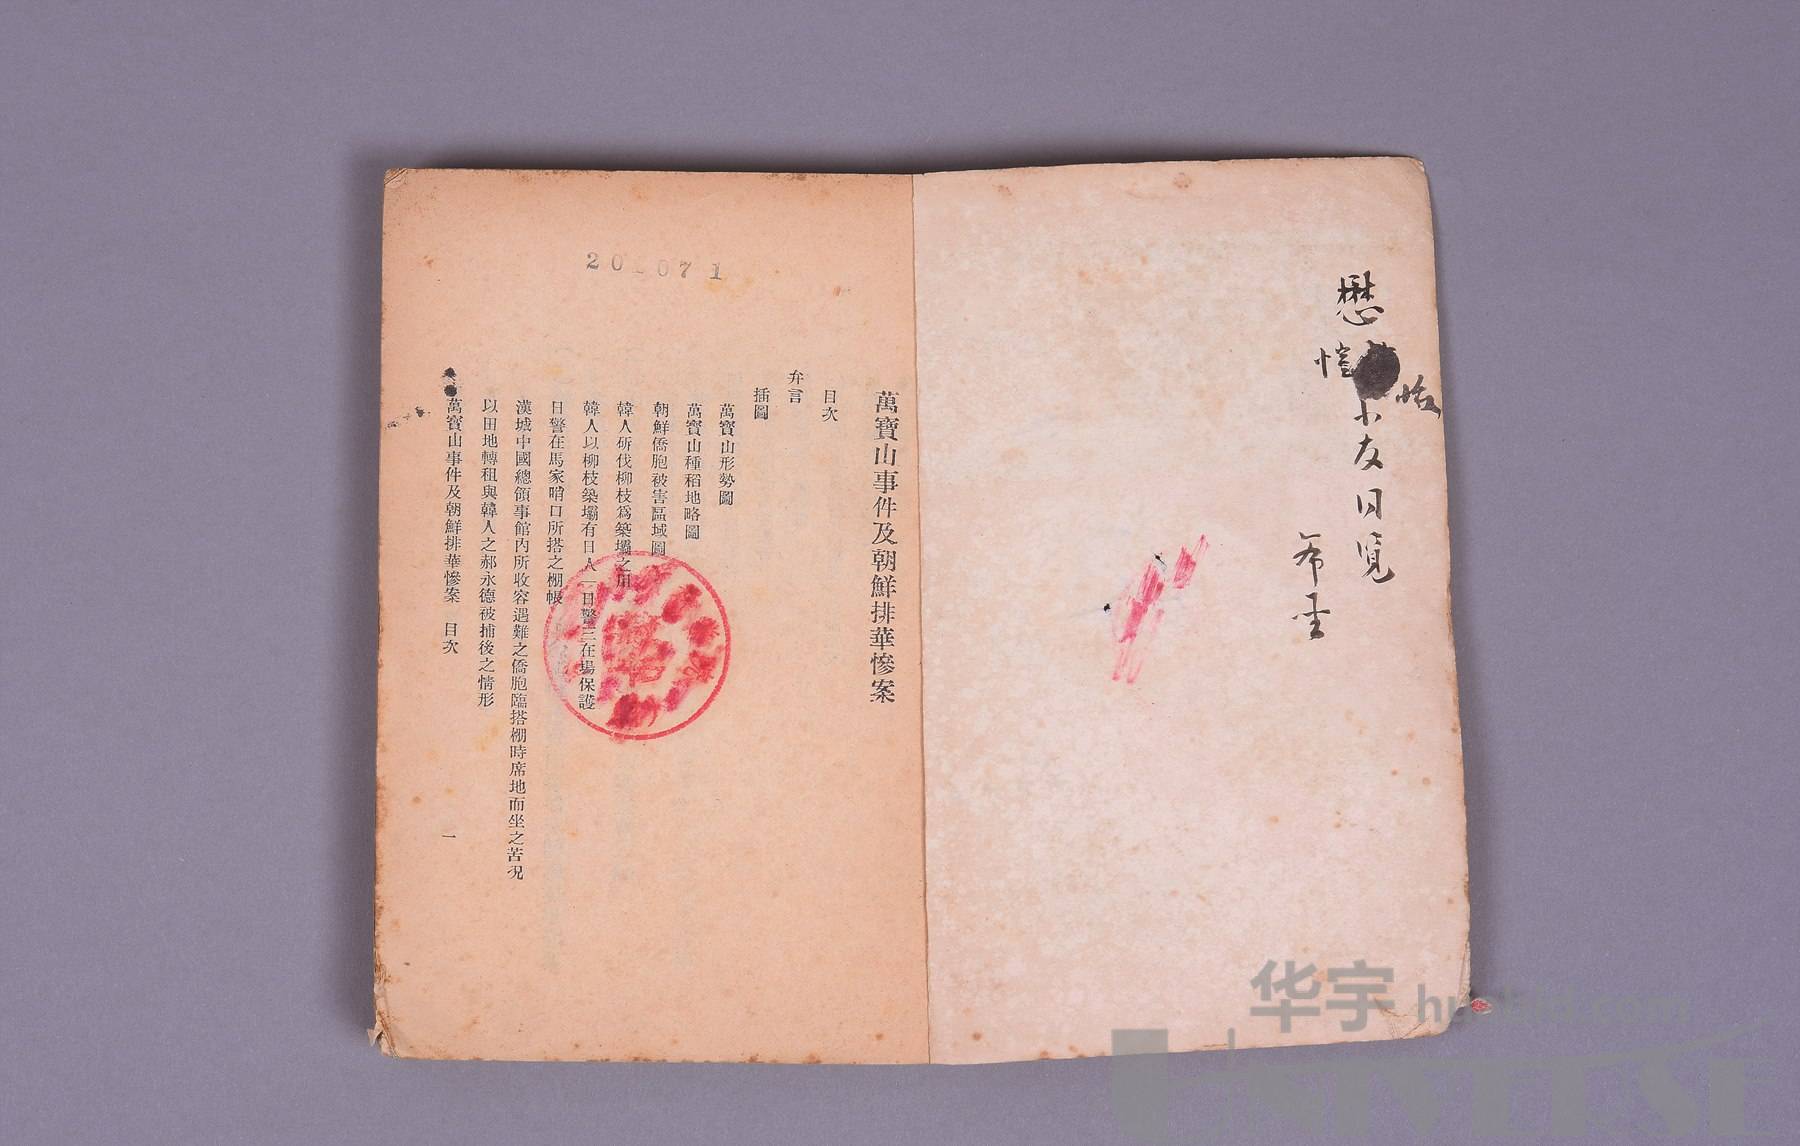 懋
愷
恪
小友同覽
希聖
20 071
萬寶山事件及朝鮮排華慘案
目次
弁言
插圖
萬寶山形勢圖
萬寶山種稻地略圖
朝鮮僑胞被害區域圖
韓人斫伐柳枝爲築壩之用
韓人以柳枝築壩有日人一日警三在場保護
日警在馬家哨口所搭之棚帳
漢城中國總領事館內所收容遇難之僑胞臨搭棚時席地而坐之苦況
以田地轉租與韓人之郝永德被捕後之情形
萬寶山事件及朝鮮排華慘案 目次
一
华宇